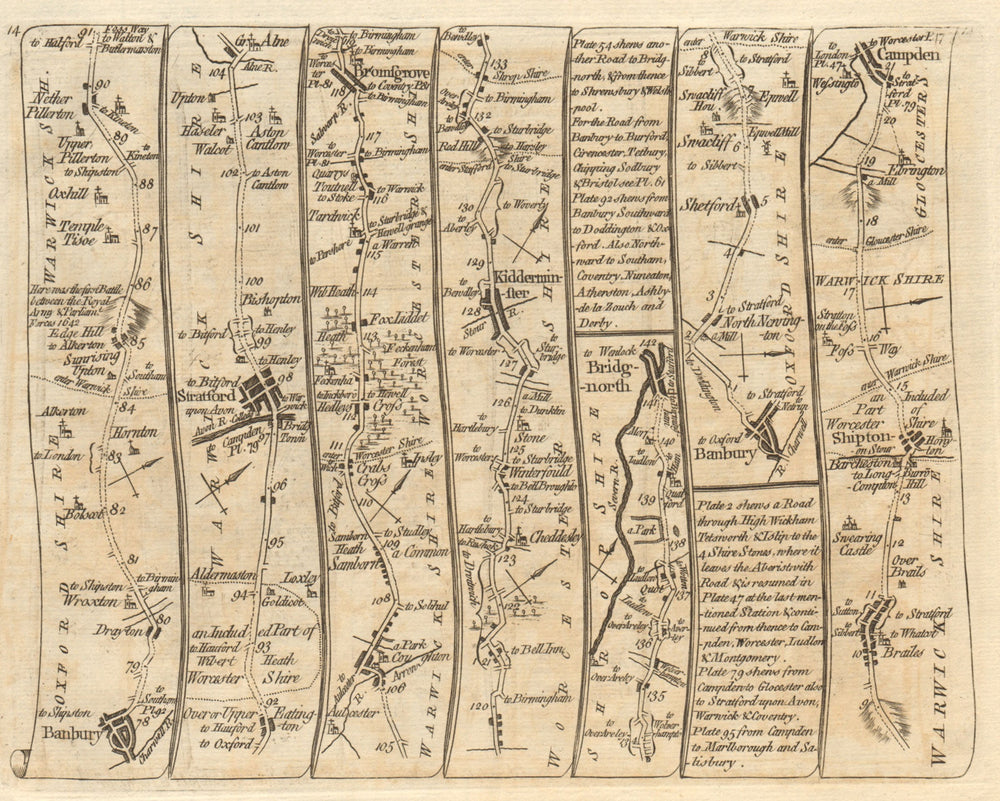 14
91
Foss Way
to Walton &
Butlermarston
to Halford
90
Nether
Pillerton
to Kineton
89
Upper
Pillerton
to Kineton
to Shipston
88
Oxhill
WARWICK SH.
87
Temple
Tisoe
86
Here was the first Battle
between the Royal
Army & Parliamt.
Forces 1642
Edge Hill
to Alkerton
85
Sunrising
Upton
to Southam
enter Warwick Shire
84
Alkerton
Hornton
to London
83
Bolscot
82
81
to Shipston
to Birmin-
gham
Wroxton
80
Drayton
79
OXFORD SHIRE
to Southam
Pl. 92
to Shipston
78
Banbury
Charwell R.
Gr. Alne
104
Alne R.
Upton
103
Haseler
Aston
Cantlow
Walcot
102
to Aston
Cantlow
101
100
Bishopton
to Bitford
to Henley
99
to Henley
to Bitford
98
Stratford
upon Avon
to War-
wick
Avon R.
Bridg
Town
to Campden
Pl. 79
97
96
95
WARWICK SHIRE
Aldermaston
Loxley
94
Goldicot
an Included Part of
to Hauford
93
Wilbert
Heath
Worcester Shire
92
Over or Upper
Eating-
ton
to Hauford
to Oxford
to Birmingham
to Birmingham
to Worces-
ter
Pl. 81
Bromsgrove
118
to Coventry P. 81
to Birmingham
Salwarp R.
117
to Worcester
Pl. 81
to Birmingham
Quartys
Toutnell
to Stoke
to Warwick
116
Tardwick
to Sturbridge &
Hewell grange
to Pershore
a Warren
115
Wib Heath
114
Fox Liddet
Heath
113
Feckenham
Forest
Feckenha
to Hewell
Cross
Hedley
112
111
enter Warwick
Worcester Shire
Crabs
Cross
Insley
to Bitford
110
to Studley
109
a Common
Samborn
Heath
Samborn
108
to Solhul
107
a Park
Coughton
Arrow
to Aulcester
106
Aulcester
105
WORCESTER SHIRE
WARWICK SHIRE
to Bewdley
133
Shrop Shire
Over
Areley
to Birmingham
132
to Bewdley
to Sturbridge
Red Hill
to Harsley
enter Stafford Shire
to Sturbridge
131
to Woverly
130
to Aberley
129
Kiddermin-
-ster
to Bewdley
128
Stour R.
to Worcester
to Stur-
bridge
127
a Mill
126
to Dunklin
Hartlebury
Stone
125
to Worcester
to Sturbridge
Winterfould
to Bell Broughton
124
to Sturbridge
to Hartlebury
Cheddesley
to Rushock
123
to Droitwich
122
121
to Bell Inn
to Birmingham
120
WORCESTER SHIRE
Plate 54 shews ano-
ther Road to Bridg-
north, & from thence
to Shrewsbury & Welsh-
pool.
For the Road from
Banbury to Burford,
Cirencester, Tetbury,
Chipping Sodbury
& Bristol see Pl. 61
Plate 92 shews from
Banbury Southward
to Doddington & Ox-
ford. Also North-
ward to Southam,
Coventry, Nuneaton,
Atherston, Ashby-
de la Zouch and
Derby.
142
to Wenlock
Bridg-
north
141
Mory
140
to Ludlow
Severn R.
139
Quatford
a Park
138
to Ludlow
Quot
137
to Ludlow
to Over Areley
136
to Over Areley
135
to Over Areley
to Wolver
hampton
134
SHROP SHIRE
enter Warwick Shire
8
to Sibbert
to Stratford
Swacliff
Hou.
7
Epwell
Swacliff
Epwell Mill
6
to Sibbert
Shetford
5
4
3
to Stratford
2
North Newing-
ton
a Mill
1
to Doddington
to Stratford
to Oxford
Banbury
Charwell R.
OXFORD SHIRE
Plate 2 shews a Road
through High Wickham
Tetsworth & Islip to the
4 Shire Stones, where it
leaves the Aberistwith
Road & is resumed in
Plate 47 at the last men-
tioned Station & conti-
nued from thence to Cam-
pden, Worcester, Ludlow
& Montgomery.
Plate 79 shews from
Campden to Glocester also
to Stratford upon Avon,
Warwick & Coventry.
Plate 95 from Campden
to Marlborough and Sa-
lisbury.
to Worcester
to
London
Pl. 47
Campden
Wessington
21
to Strat-
ford
Pl. 79
20
19
Ebrington
a Mill
18
GLOCESTER S
enter Gloucester Shire
WARWICK SHIRE
17
Stratton
on the Foss
16
Foss Way
enter Warwick Shire
15
an Included
Part of
Worcester Shire
Shipton
on Stour
Hony-
ton
14
Barcheston
to Long
Compton
Burro
Hill
13
Swearing
Castle
12
Over
Brails
11
to Sutton
to Stratford
to Sibbert
to Whatcot
10
Brailes
9
WARWICK SHIRE